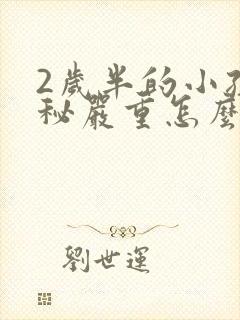 2歲半的小孩
秘嚴重怎麼
劉世運